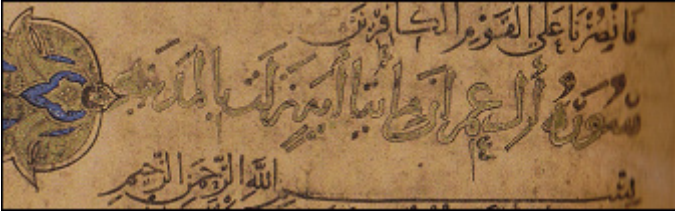 فَانْصُرْنَا عَلَى الْقَوْمِ الْكَافِرِينَ
سُورَةُ أل عمران مايتا أية نزلت بالمدينه
بِسْمِ اللَّهِ الرَّحْمَنِ الرَّحِيمِ